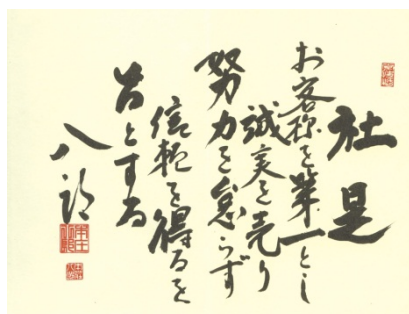 社是
お客様を第一とし
誠実を売り
努力を怠らず
信頼を得るを
旨とする
八郎